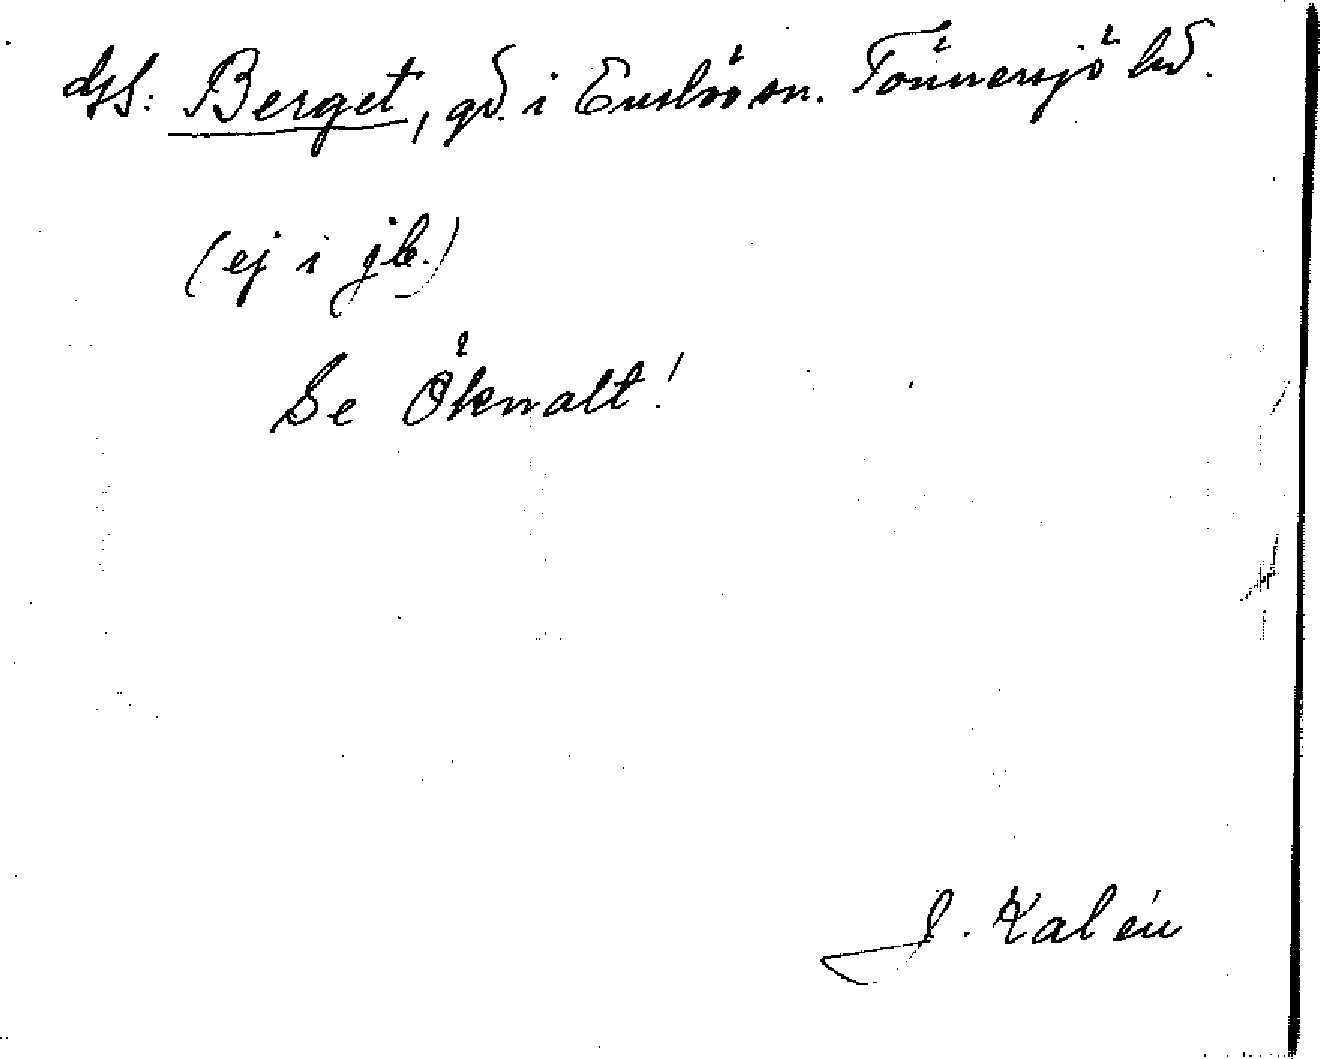 Hs: Berget, gd. i Enslöv sn. Tönnersjö hd.
(ej i jb.)
Se Öknalt!
J. Kalén